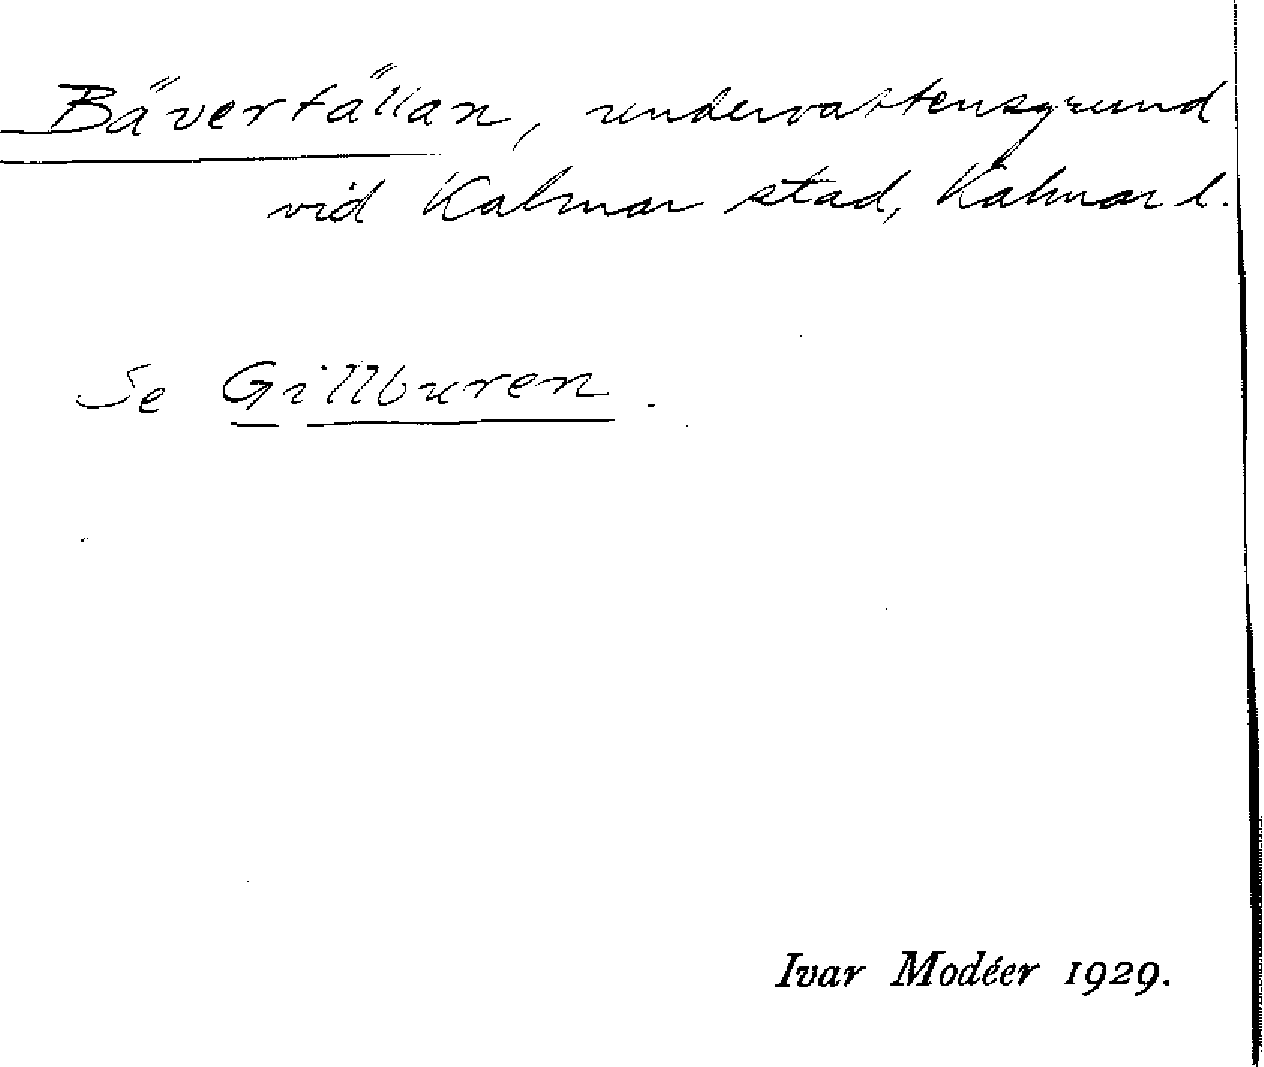 Bäverfällan, undervattensgrund
vid Kalmar stad, Kalmar l.
Se Gillburen.
Ivar Modéer 1929.